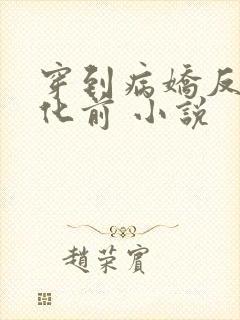 穿到病嬌反
化前 小說
趙荣賓